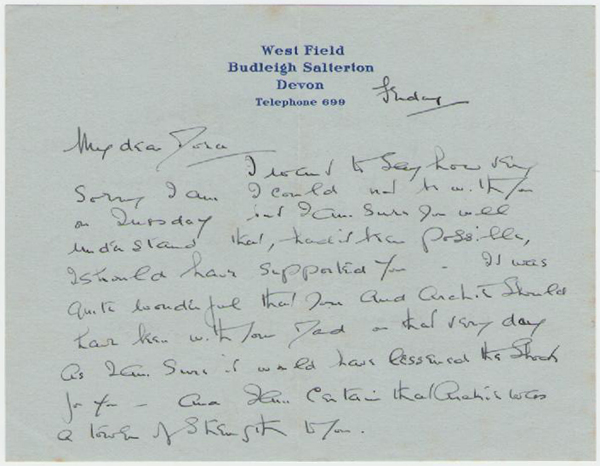 West Field
Budleigh Salterton
Devon
Telephone 699
Friday
My dear Dora
I want to say how very
sorry I am I could not be with you
on Tuesday but I am sure you will
understand that, had it been possible,
I should have supported you - It was
quite wonderful that you and Archie should
have been with your Dad on that very day
as I am sure it would have lessened the shock
for you - and I am certain that Archie was
a tower of strength to you.